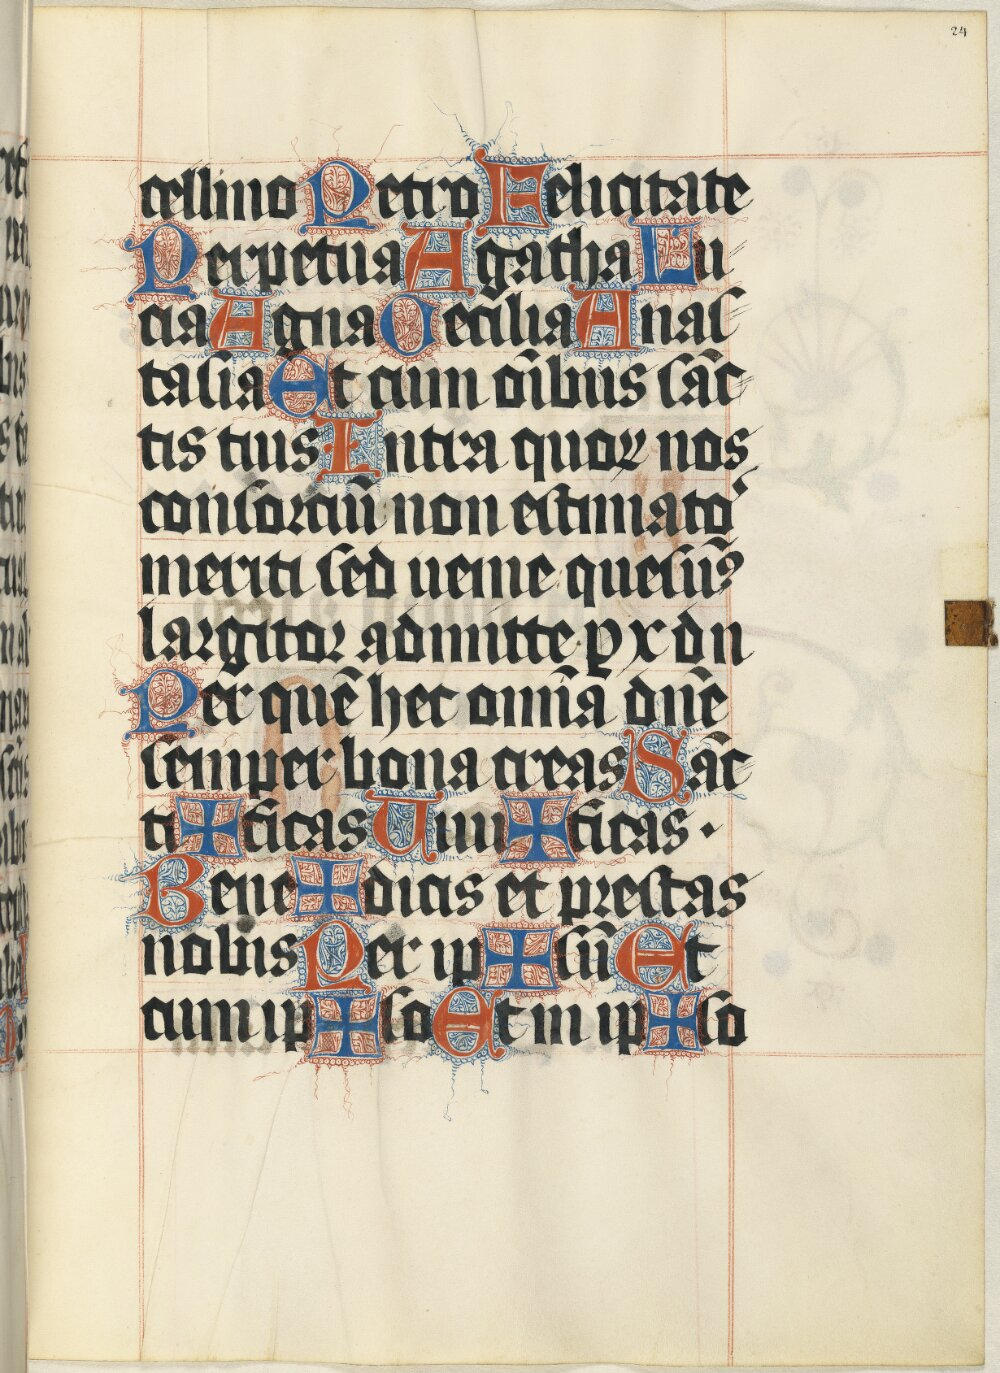 24
cellino Petro Felicitate
Perpetua Agatha Lu
cia Agna Cecilia Anas
tasia Et cum oībus sāc
tis tuis Intra quoꝝ nos
consorciū non estimator
meriti sed uenie quesumꝰ
largitor admitte ꝑ xp̄m dn
Per quē hec omīa dn̄e
semper bona creas Sāc
ti✠ficas Uiui✠ficas ·
Bene✠dicis et prestas
nobis Per ip✠sū Et
cum ip✠so Et in ip✠so